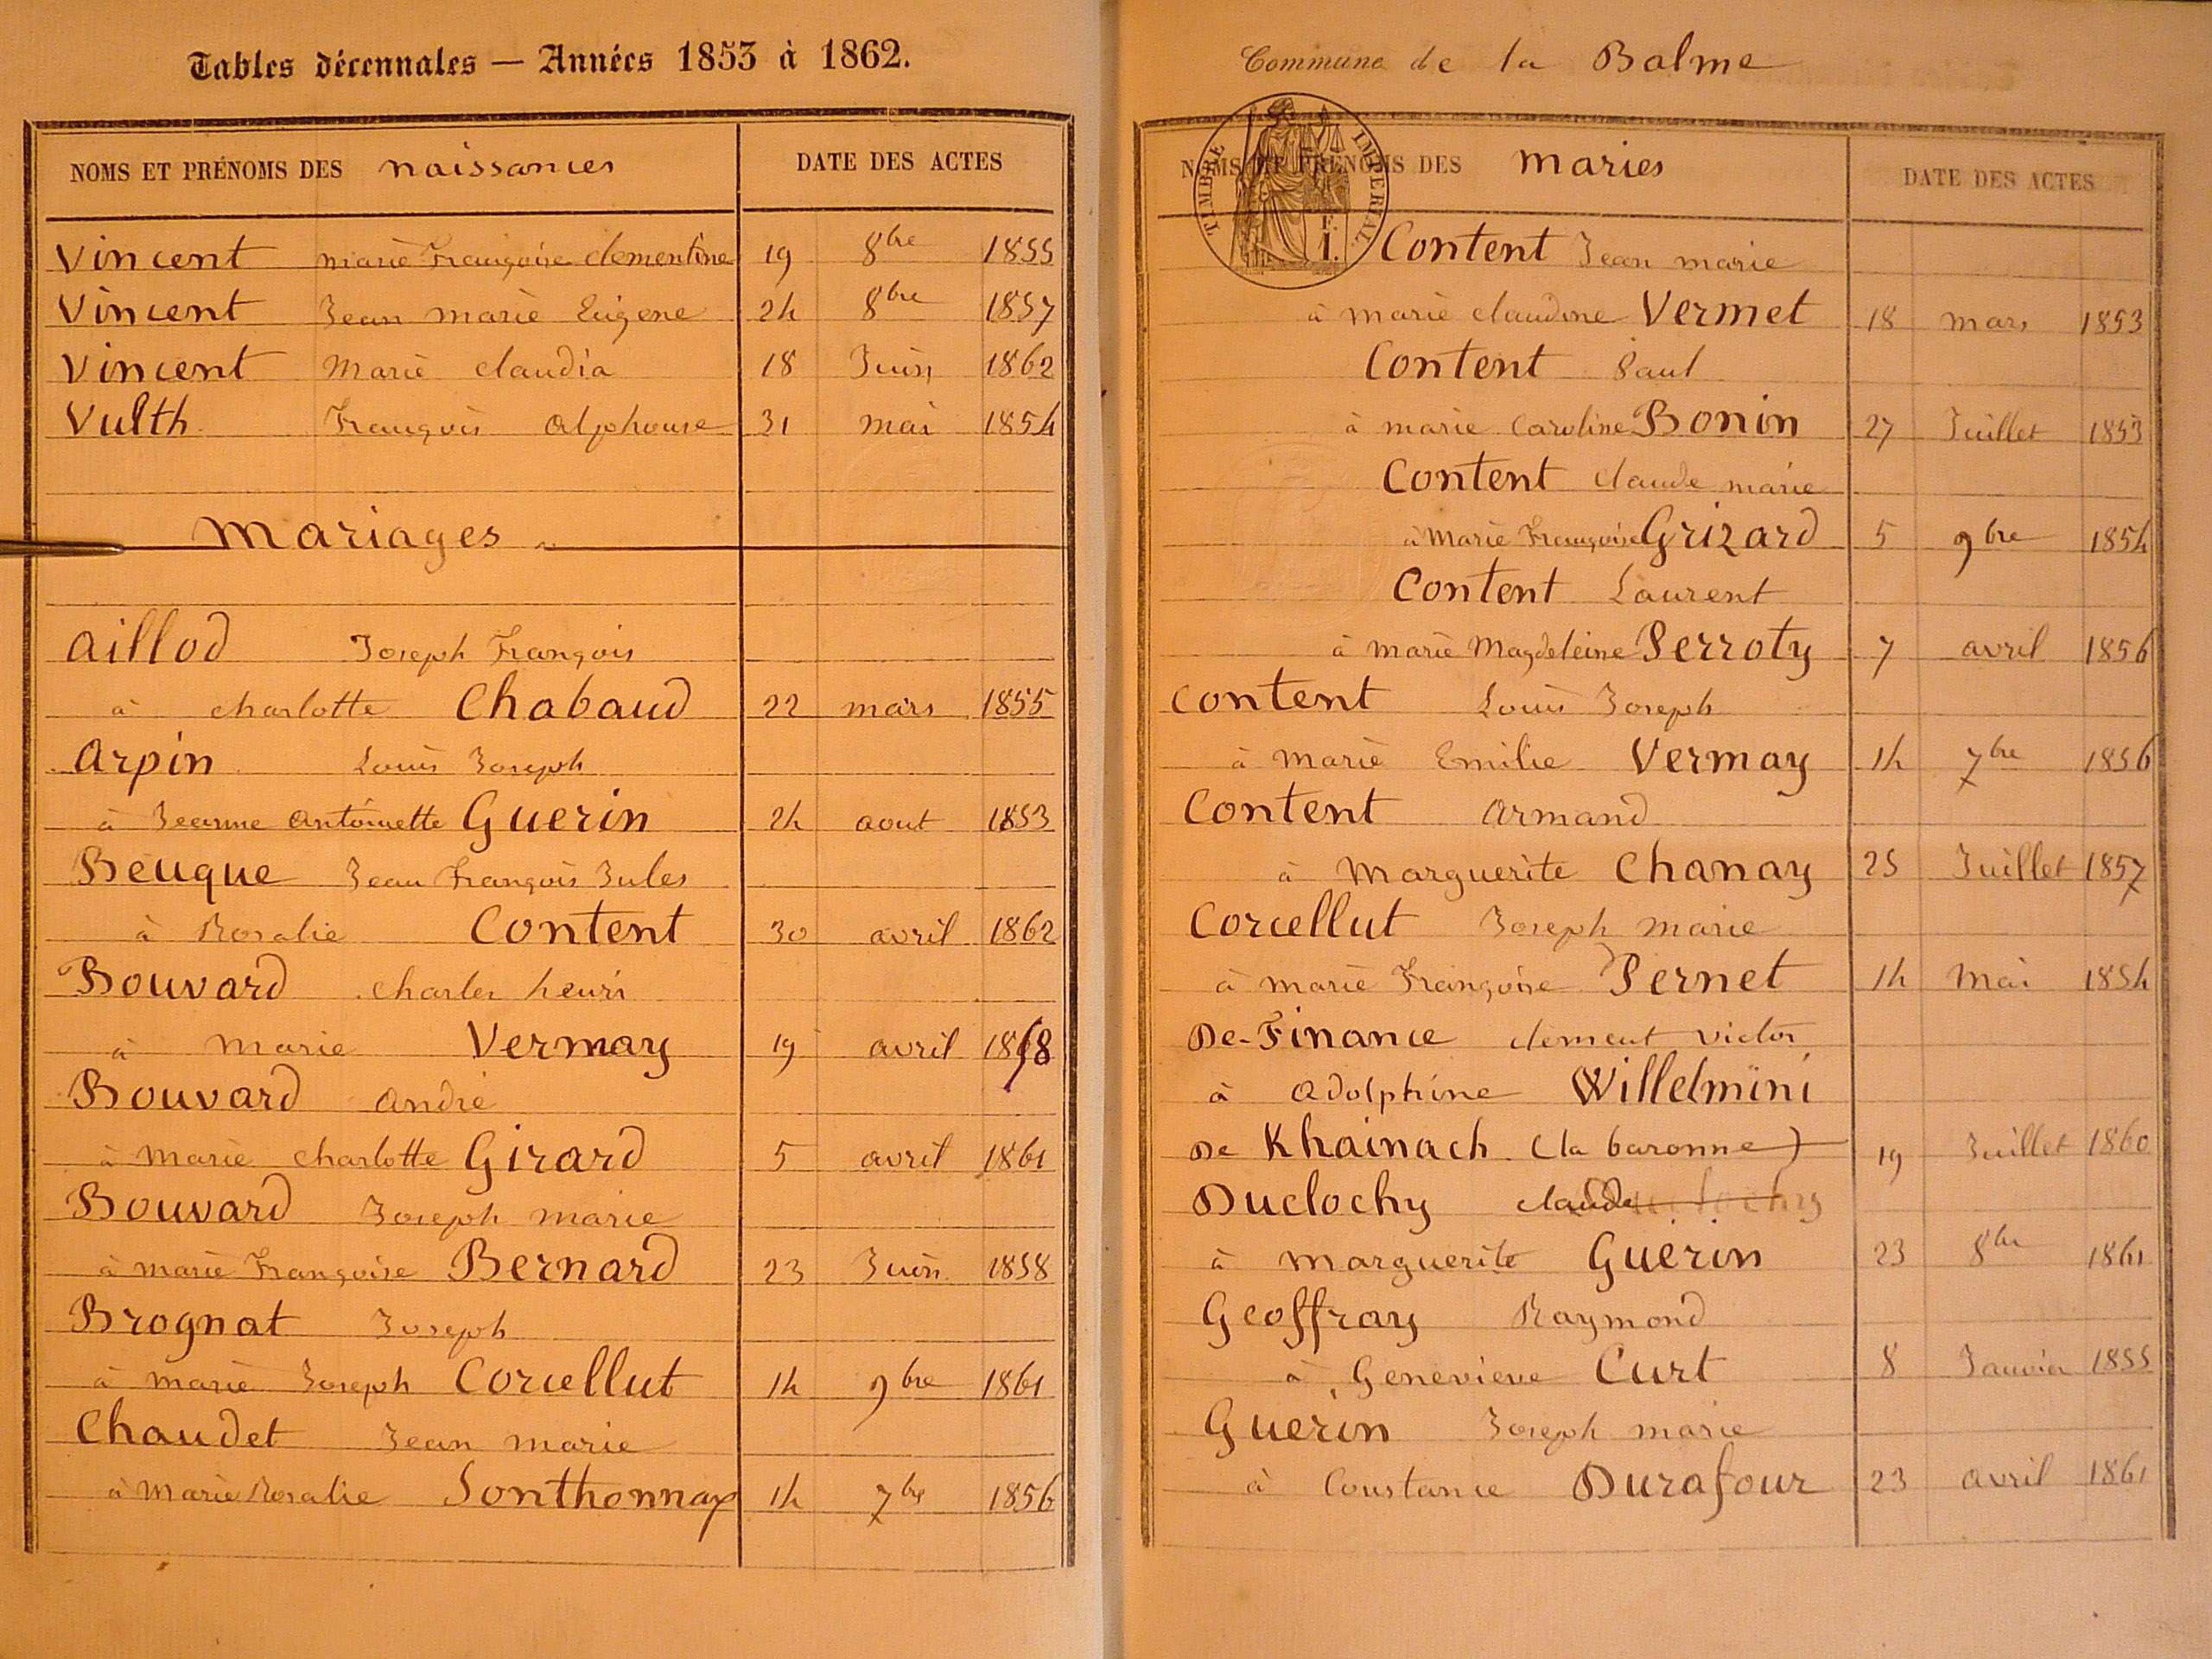 Tables décennales — Années 1853 à 1862.
NOMS ET PRÉNOMS DES naissances DATE DES ACTES
Vincent marie Françoise clementine 19 8bre 1855
Vincent Jean marie Eugene 24 8bre 1857
Vincent Marie claudia 18 Juin 1862
Vulth François alphonse 31 mai 1854
Mariages
Aillod Joseph François
à charlotte Chabaud 22 mars 1855
Arpin Louis Joseph
à Jeanne Antoinette Guerin 24 aout 1853
Beuque Jean François Jules
à Rosalie Content 30 avril 1862
Bouvard charles henri
à Marie Vermay 19 avril 1858
Bouvard André
à Marie charlotte Girard 5 avril 1861
Bouvard Joseph marie
à marie Françoise Bernard 23 Juin 1858
Brognat Joseph
à marie Joseph Corcellut 14 9bre 1861
Chaudet Jean marie
à Marie Rosalie Sonthonnax 14 7bre 1856
Commune de la Balme
TIMBRE IMPERIAL
NOMS ET PRÉNOMS DES Maries DATE DES ACTES
Content Jean marie
à marie claudine Vermet 18 mars 1853
Content Paul
à marie Caroline Bonin 27 Juillet 1853
Content claude marie
à Marie Françoise Grizard 5 9bre 1854
Content Laurent
à marie Magdeleine Perroty 7 avril 1856
Content Louis Joseph
à marie Emilie Vermay 14 7bre 1856
Content Armand
à Marguerite Chanay 25 Juillet 1857
Corcellut Joseph Marie
à marie Françoise Pernet 14 Mai 1854
De-Finance clement victor
à Adolphine Willelmini
De Khainach (la baronne) 19 Juillet 1860
Duclochy claude
à Marguerite Guerin 23 8bre 1861
Geoffray Raymond
à Genevieve Curt 8 Janvier 1855
Guerin Joseph marie
à Constance Durafour 23 avril 1861